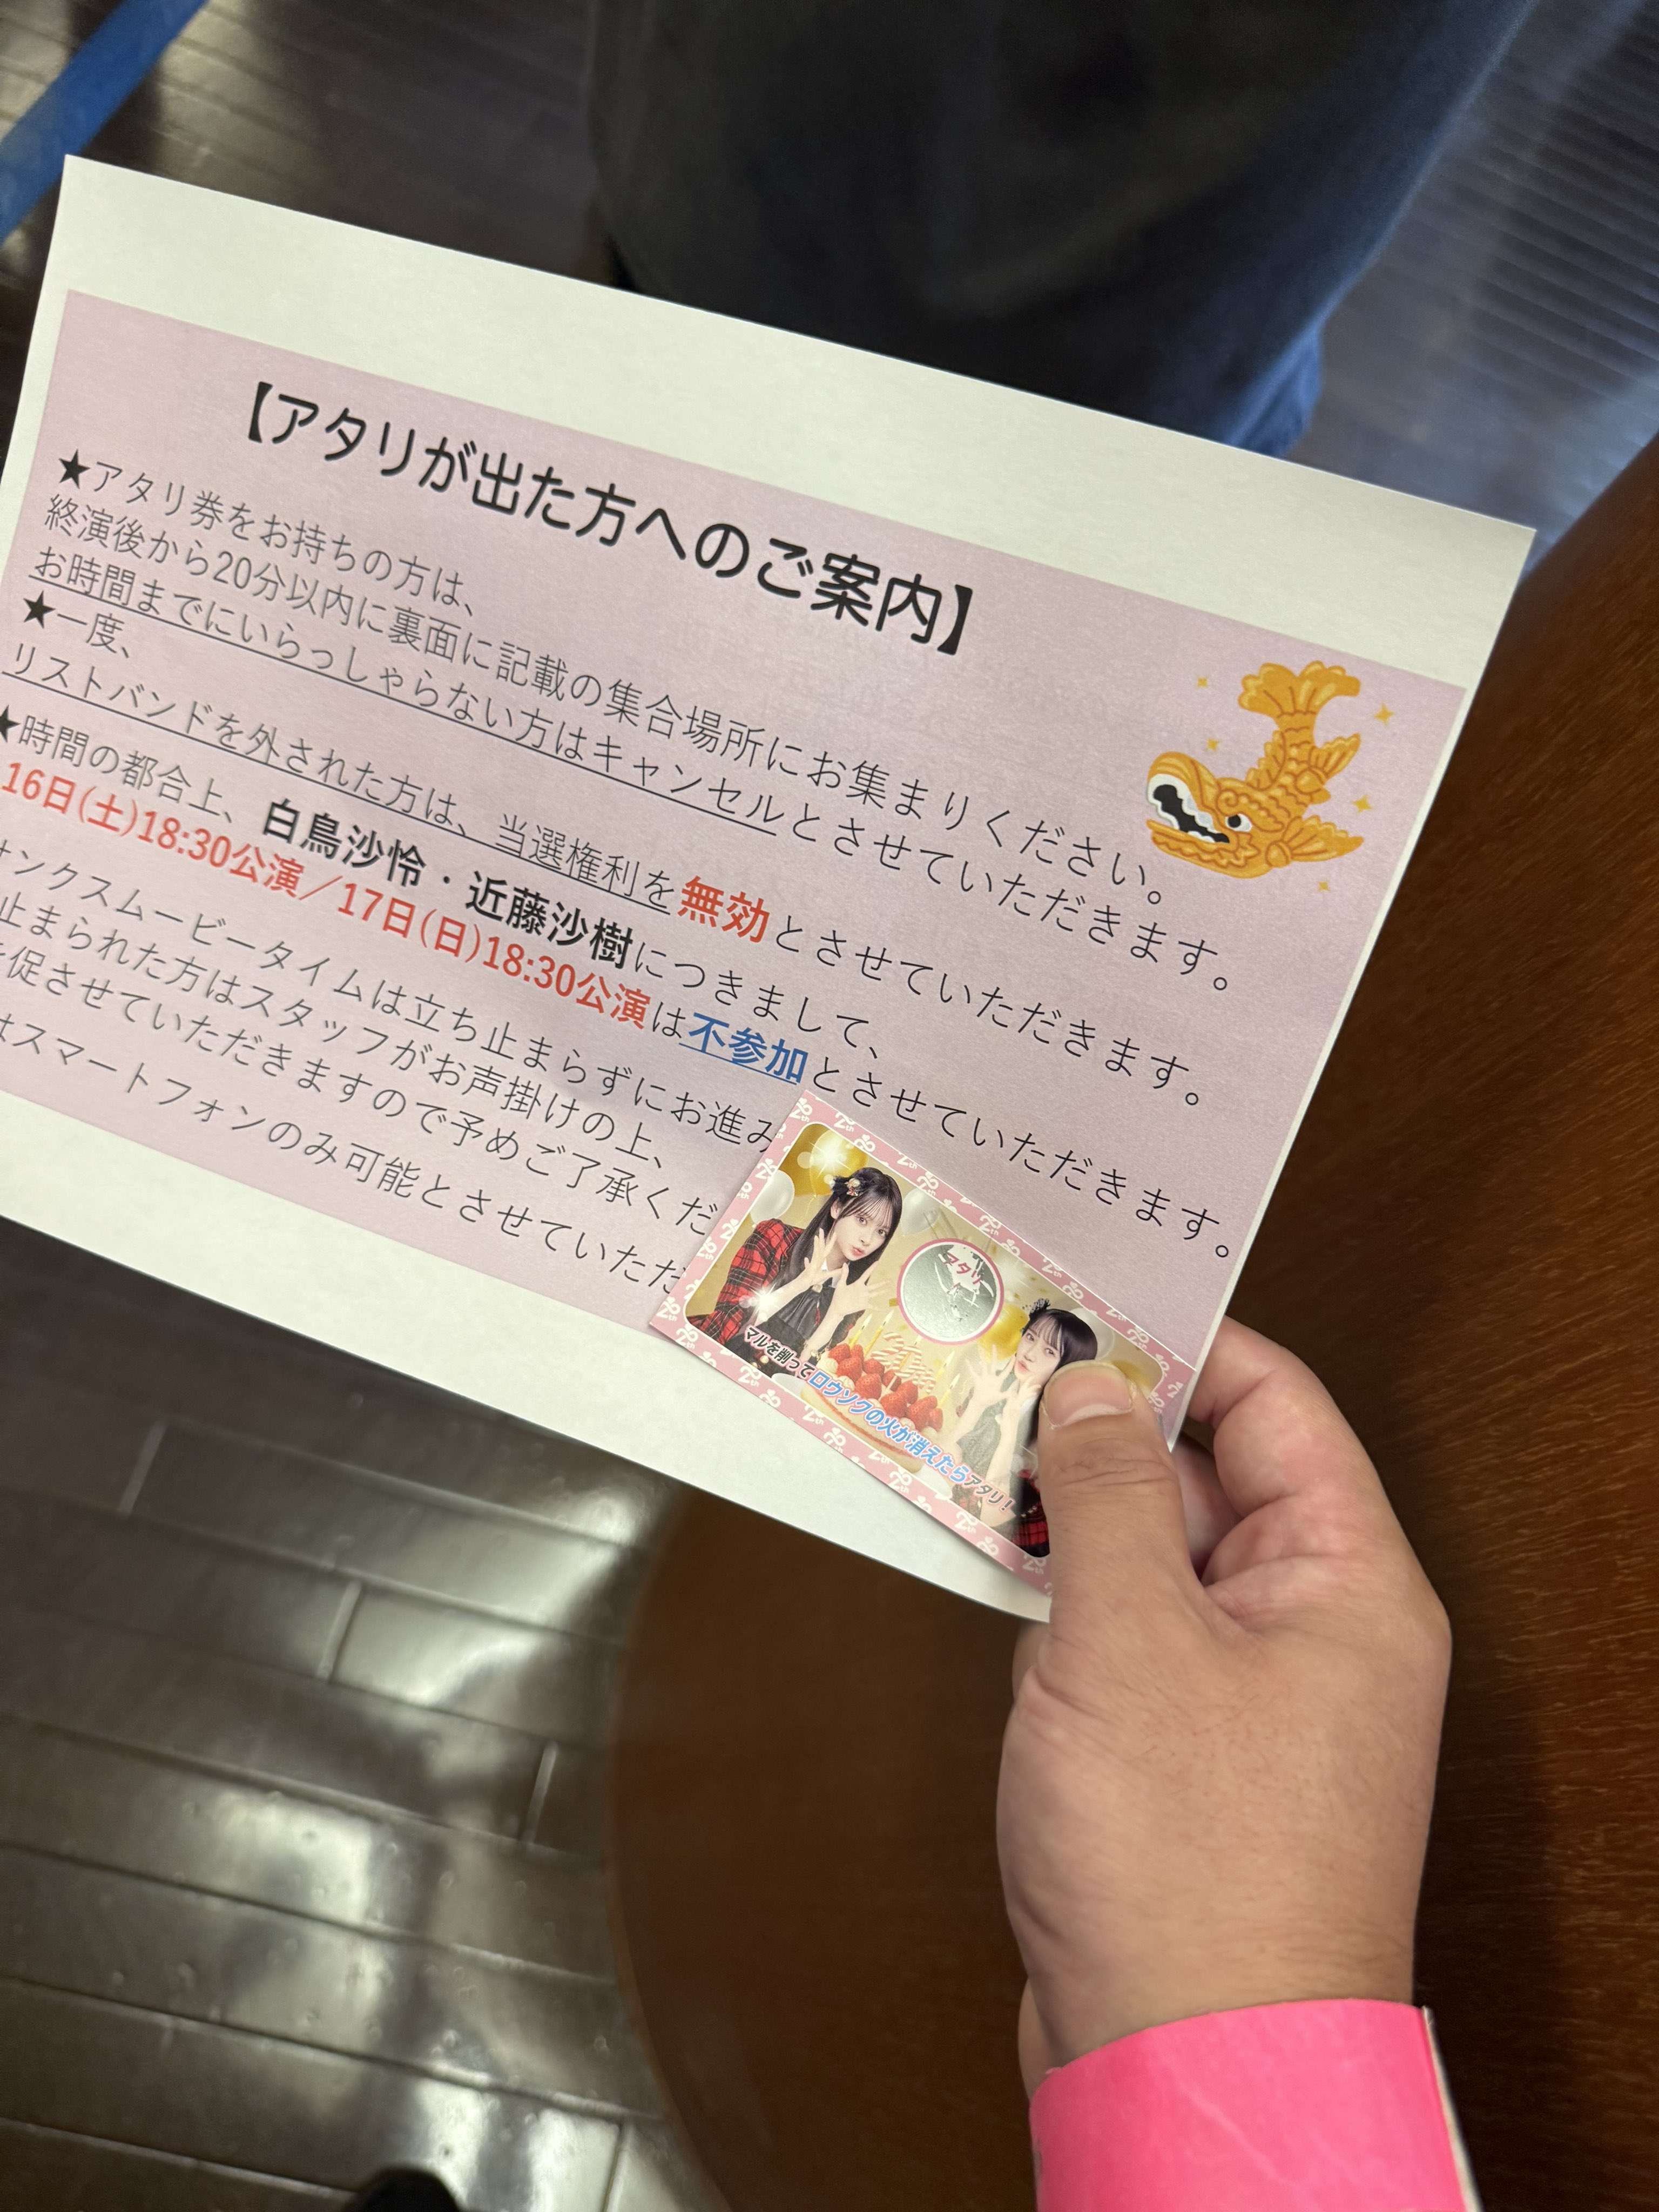 【アタリが出た方へのご案内】
★アタリ券をお持ちの方は、
終演後から20分以内に裏面に記載の集合場所にお集まりください。
お時間までにいらっしゃらない方はキャンセルとさせていただきます。
★一度、
リストバンドを外された方は、当選権利を無効とさせていただきます。
★時間の都合上、白鳥沙怜・近藤沙樹につきまして、
16日(土)18:30公演／17日(日)18:30公演は不参加とさせていただきます。
ンクスムービータイムは立ち止まらずにお進み
止まられた方はスタッフがお声掛けの上、
促させていただきますので予めご了承くだ
はスマートフォンのみ可能とさせていただ
アタリ
マルを削ってロウソクの火が消えたらアタリ！